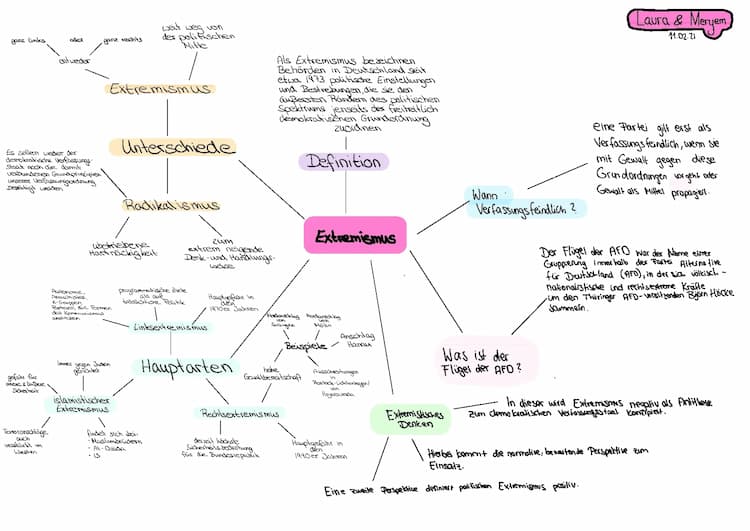 Laura & Meryem
11.02.21
ganz links oder ganz rechts
entweder
weit weg von
der politischen
Mitte
Extremismus
Unterschiede
Es sollen weder der
demokratische Verfassungs-
staat noch die damit
verbundenen Grundprinzipien
unserer Verfassungsordnung
beseitigt werden
Radikalismus
Hartnäckigkeit
zum
extrem neigende
Denk- und Handlungs-
weise
Als Extremismus bezeichnen
Behörden in Deutschland seit
etwa 1973 politische Einstellungen
und Bestrebungen, die sie den
äußersten Rändern des politischen
Spektrums jenseits der freiheitlich
demokratischen Grundordnung
zuordnen
Definition
Extremismus
Wann
Verfassungsfeindlich?
eine Partei gilt erst als
Verfassungsfeindlich, wenn sie
mit Gewalt gegen diese
Grundordnungen vorgeht oder
Gewalt als Mittel propagiert.
Der Flügel der AFD war der Name einer
Gruppierung innerhalb der Partei Alternative
für Deutschland (AFD), in der sich völkisch-
nationalistische und rechtsextreme Kräfte
um den Thüringer AFD-vorsitzenden Björn Höcke
sammeln.
Was ist der
Flügel der AFD?
Extremistisches
Denken
In dieser wird Extremismus negativ als Antithese
zum demokratischen Verfassungsstaat konzipiert.
Hierbei kommt die normative, bewertende Perspektive zum
Einsatz.
Eine zweite Perspektive definiert politischen Extremismus positiv.
Hauptarten
Linksextremismus
Autonome,
programmatische Ziele
als auf
Politik
Hauptgefahr in
den
1970er Jahren
islamistischer
Extremismus
gefahr für
innere & äußere
Sicherheit
immer gegen Juden
gerichtet
Terroranschläge,
auch
verstärkt im
Westen
findet sich bei:
- Muslimbrüdern
- Al-Qaida
- IS
Rechtsextremismus
hohe
Gewaltbereitschaft
derzeit höchste
Sicherheitsbedrohung
für die Bundesrepublik
Hauptgefahr in
den
1990er Jahren
Beispiele
Brandanschlag
von
Solingen
Brandanschlag
von
Mölln
Anschlag
Hanau
Ausschreitungen in
Rostock-Lichtenhagen/
Hoyerswerda